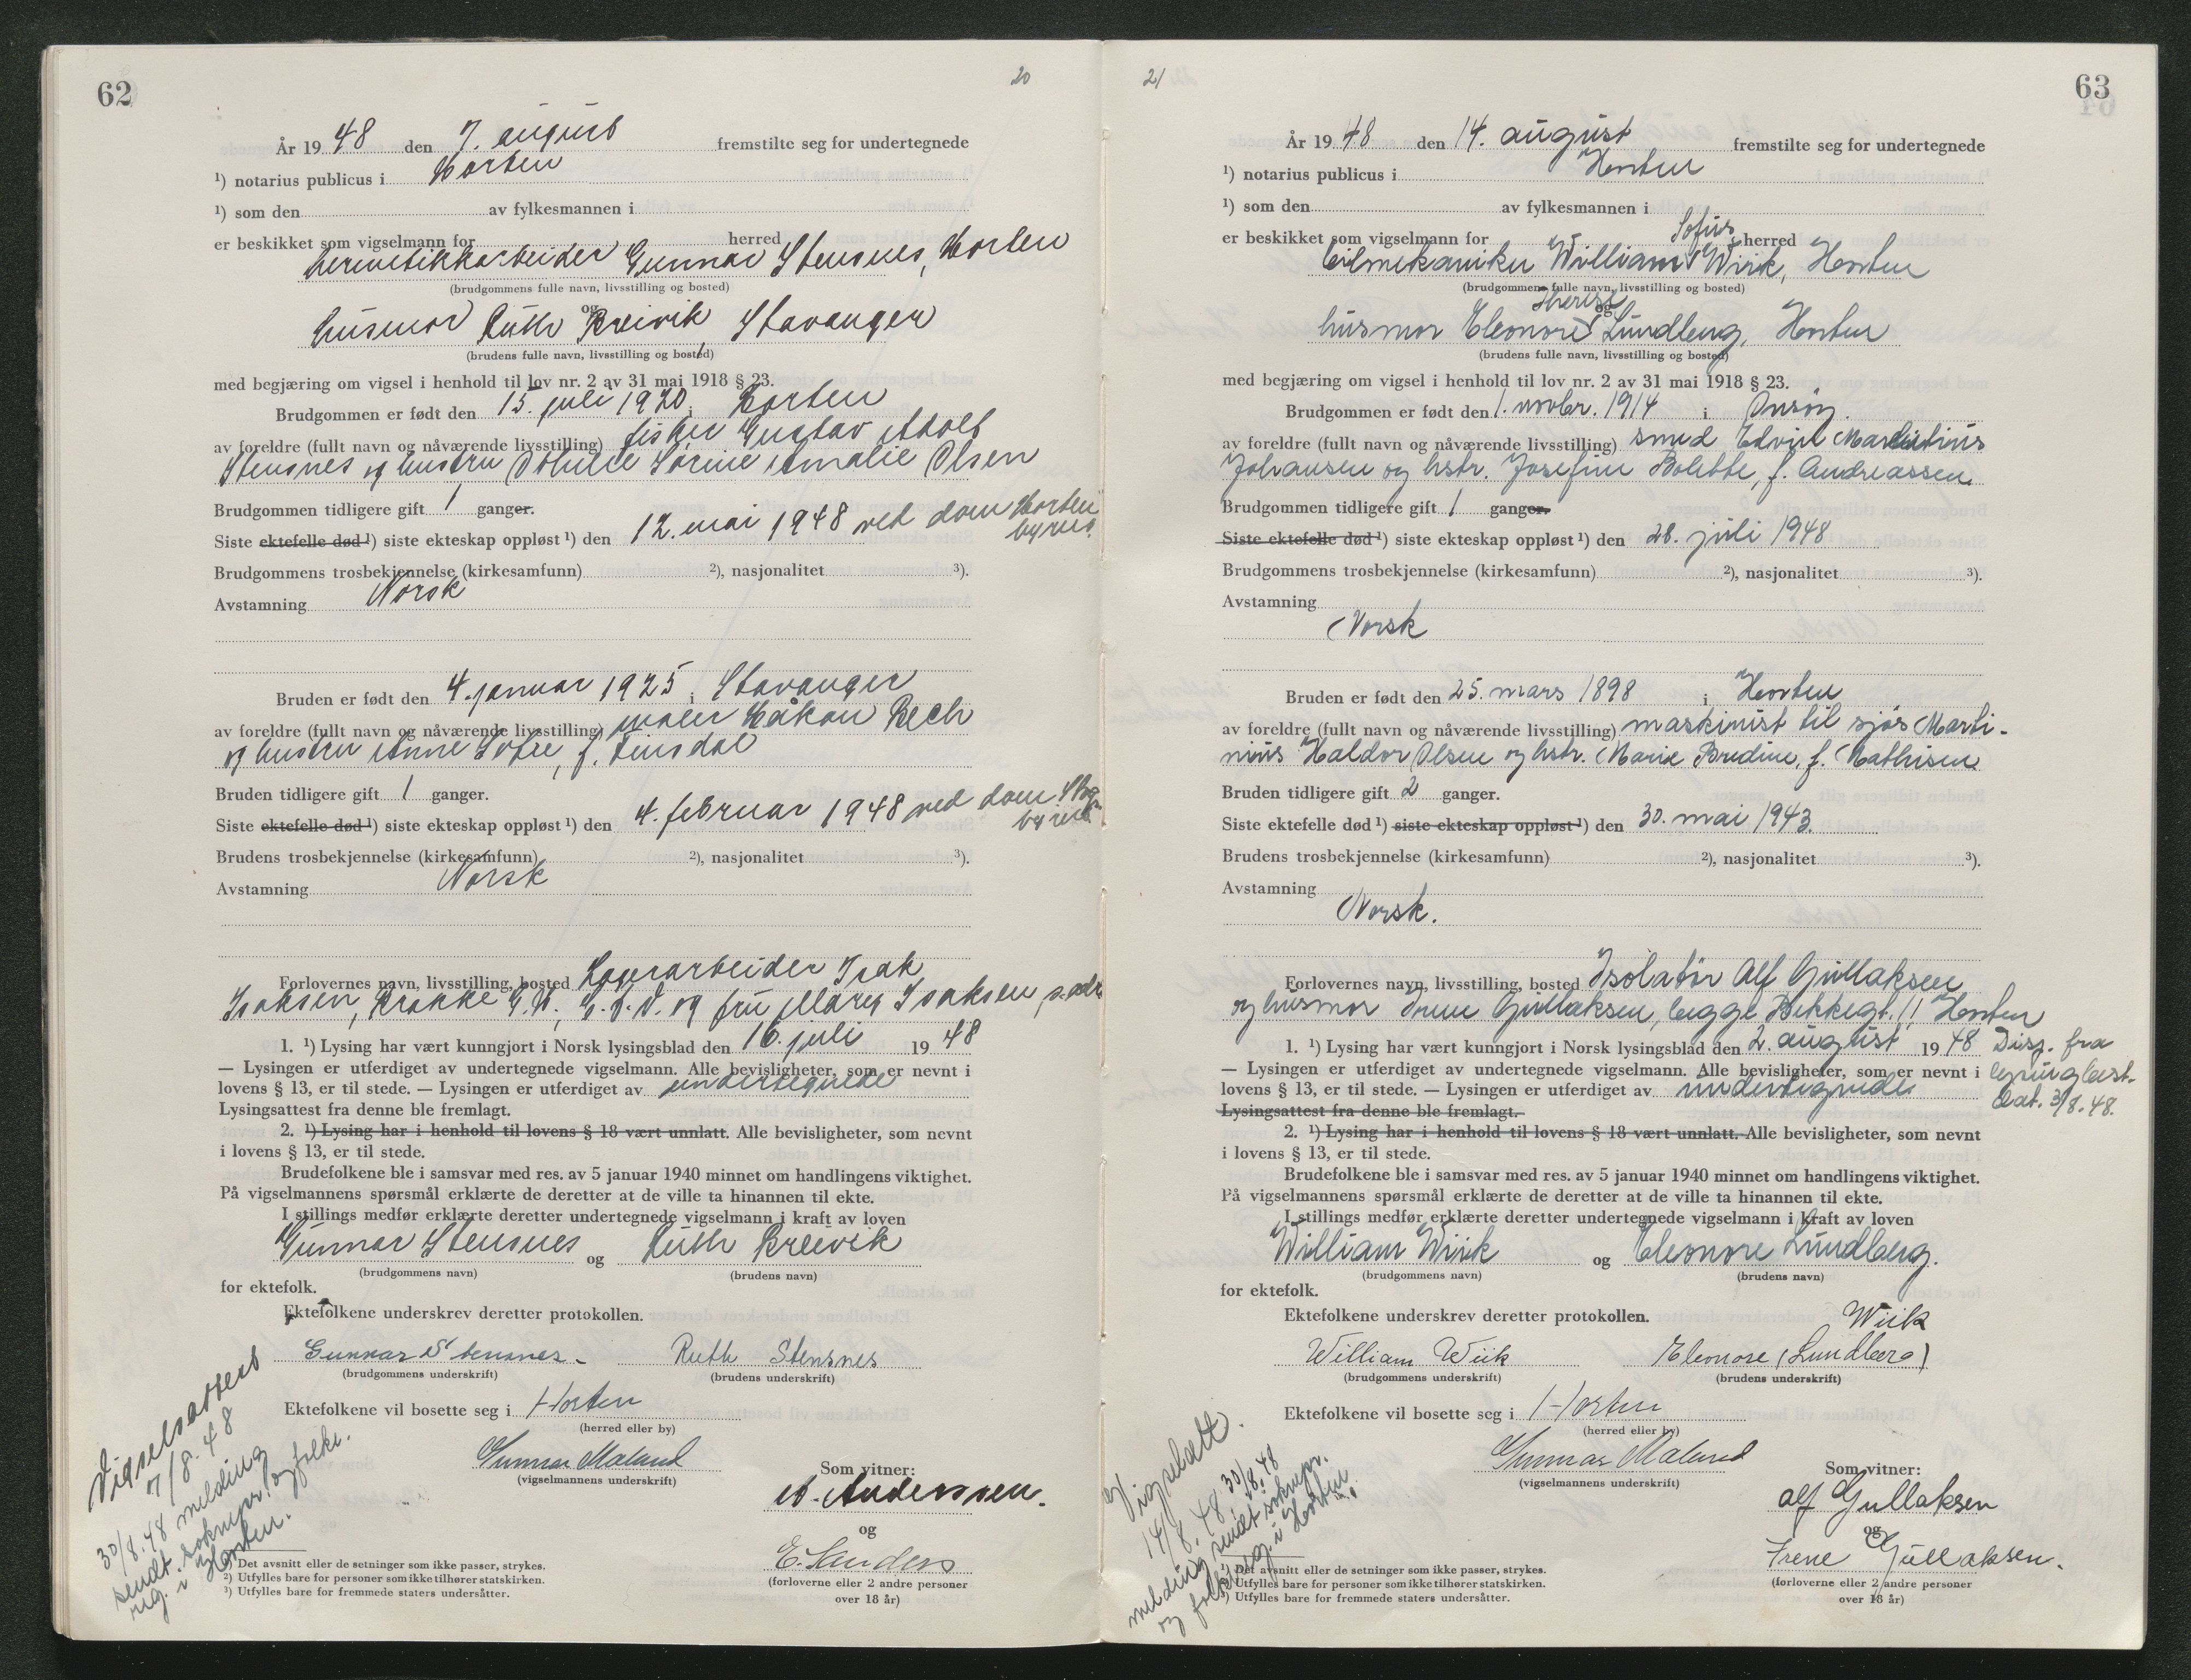 62
20
År 19 48 den 7. august fremstilte seg for undertegnede
¹) notarius publicus i Horten
¹) som den av fylkesmannen i
er beskikket som vigselmann for herred
hermetikkarbeider Gunnar Stensnes, Horten
(brudgommens fulle navn, livsstilling og bosted)
og
husmor Ruth Breivik, Stavanger
(brudens fulle navn, livsstilling og bosted)
med begjæring om vigsel i henhold til lov nr. 2 av 31 mai 1918 § 23.
Brudgommen er født den 15. juli 1920 i Horten
av foreldre (fullt navn og nåværende livsstilling) fisker Gustav Adolf
Stensnes og hustru Sörine Amalie Olsen
Brudgommen tidligere gift 1 ganger.
Siste ektefelle død ¹) siste ekteskap oppløst ¹) den 12. mai 1948 ved dom Horten
byrett.
Brudgommens trosbekjennelse (kirkesamfunn) ²), nasjonalitet ³).
Avstamning Norsk
Bruden er født den 4. januar 1925 i Stavanger
av foreldre (fullt navn og nåværende livsstilling) maler Håkon Bech
og hustru Anne Sofie, f. Tinsdal
Bruden tidligere gift 1 ganger.
Siste ektefelle død ¹) siste ekteskap oppløst ¹) den 4. februar 1948 ved dom Stvgr.
byrett.
Brudens trosbekjennelse (kirkesamfunn) ²), nasjonalitet ³).
Avstamning Norsk
Forlovernes navn, livsstilling, bosted Lagerarbeider Isak
Isaksen, og fru Mary Isaksen, s. adr.
1. ¹) Lysing har vært kunngjort i Norsk lysingsblad den 16. juli 19 48
— Lysingen er utferdiget av undertegnede vigselmann. Alle bevisligheter, som er nevnt i
lovens § 13, er til stede. — Lysingen er utferdiget av undertegnede
Lysingsattest fra denne ble fremlagt.
2. ¹) Lysing har i henhold til lovens § 18 vært unnlatt. Alle bevisligheter, som nevnt
i lovens § 13, er til stede.
Brudefolkene ble i samsvar med res. av 5 januar 1940 minnet om handlingens viktighet.
På vigselmannens spørsmål erklærte de deretter at de ville ta hinannen til ekte.
I stillings medfør erklærte deretter undertegnede vigselmann i kraft av loven
Gunnar Stensnes og Ruth Breivik
(brudgommens navn) (brudens navn)
for ektefolk.
Ektefolkene underskrev deretter protokollen.
Gunnar Stensnes. Ruth Stensnes
(brudgommens underskrift) (brudens underskrift)
Ektefolkene vil bosette seg i Horten
(herred eller by)
Gunnar Maland
(vigselmannens underskrift)
Som vitner:
A. Anderssen.
og
E. Sanders
(forloverne eller 2 andre personer
over 18 år)
Vigselsattest
7/8. 48
30/8. 48 melding
sendt. soknepr. og folke-
reg. i Horten.
¹) Det avsnitt eller de setninger som ikke passer, strykes.
²) Utfylles bare for personer som ikke tilhører statskirken.
³) Utfylles bare for fremmede staters undersåtter.
21
63
År 19 48 den 14. august fremstilte seg for undertegnede
¹) notarius publicus i Horten
¹) som den av fylkesmannen i
er beskikket som vigselmann for herred
Sofus
bilmekaniker William Wiik, Horten
(brudgommens fulle navn, livsstilling og bosted)
Therese
og
husmor Eleonore Lundberg, Horten
(brudens fulle navn, livsstilling og bosted)
med begjæring om vigsel i henhold til lov nr. 2 av 31 mai 1918 § 23.
Brudgommen er født den 1. novbr. 1914 i Onsøy.
av foreldre (fullt navn og nåværende livsstilling) smed Edvin
Johansen og hstr. Josefine Bolette, f. Andreassen.
Brudgommen tidligere gift 1 ganger.
Siste ektefelle død ¹) siste ekteskap oppløst ¹) den 28. juli 1948
Brudgommens trosbekjennelse (kirkesamfunn) ²), nasjonalitet ³).
Avstamning
Norsk
Bruden er født den 25. mars 1898 i Horten
av foreldre (fullt navn og nåværende livsstilling) maskinist til sjøs Marti-
nius Haldor Olsen og hstr. Marie Bredine, f. Mathisen.
Bruden tidligere gift 2 ganger.
Siste ektefelle død ¹) siste ekteskap oppløst ¹) den 30. mai 1943.
Brudens trosbekjennelse (kirkesamfunn) ²), nasjonalitet ³).
Avstamning
Norsk.
Forlovernes navn, livsstilling, bosted Isolatør Alf Gullaksen
og husmor Irene Gullaksen, begge Bekkegt. 11 Horten
1. ¹) Lysing har vært kunngjort i Norsk lysingsblad den 2. august 19 48 Disp. fra
— Lysingen er utferdiget av undertegnede vigselmann. Alle bevisligheter, som er nevnt i lysingbest.
lovens § 13, er til stede. — Lysingen er utferdiget av undertegnede dat. 3/8. 48.
Lysingsattest fra denne ble fremlagt.
2. ¹) Lysing har i henhold til lovens § 18 vært unnlatt. Alle bevisligheter, som nevnt
i lovens § 13, er til stede.
Brudefolkene ble i samsvar med res. av 5 januar 1940 minnet om handlingens viktighet.
På vigselmannens spørsmål erklærte de deretter at de ville ta hinannen til ekte.
I stillings medfør erklærte deretter undertegnede vigselmann i kraft av loven
William Wiik og Eleonore Lundberg.
(brudgommens navn) (brudens navn)
for ektefolk.
Ektefolkene underskrev deretter protokollen.
Wiik
William Wiik Eleonore (Lundberg)
(brudgommens underskrift) (brudens underskrift)
Ektefolkene vil bosette seg i Horten
(herred eller by)
Gunnar Maland
(vigselmannens underskrift)
Som vitner:
Alf Gullaksen
og
Irene Gullaksen.
(forloverne eller 2 andre personer
over 18 år)
Vigselatt.
14/8. 48. 30/8. 48
melding sendt soknepr.
og folkereg. i Horten.
¹) Det avsnitt eller de setninger som ikke passer, strykes.
²) Utfylles bare for personer som ikke tilhører statskirken.
³) Utfylles bare for fremmede staters undersåtter.